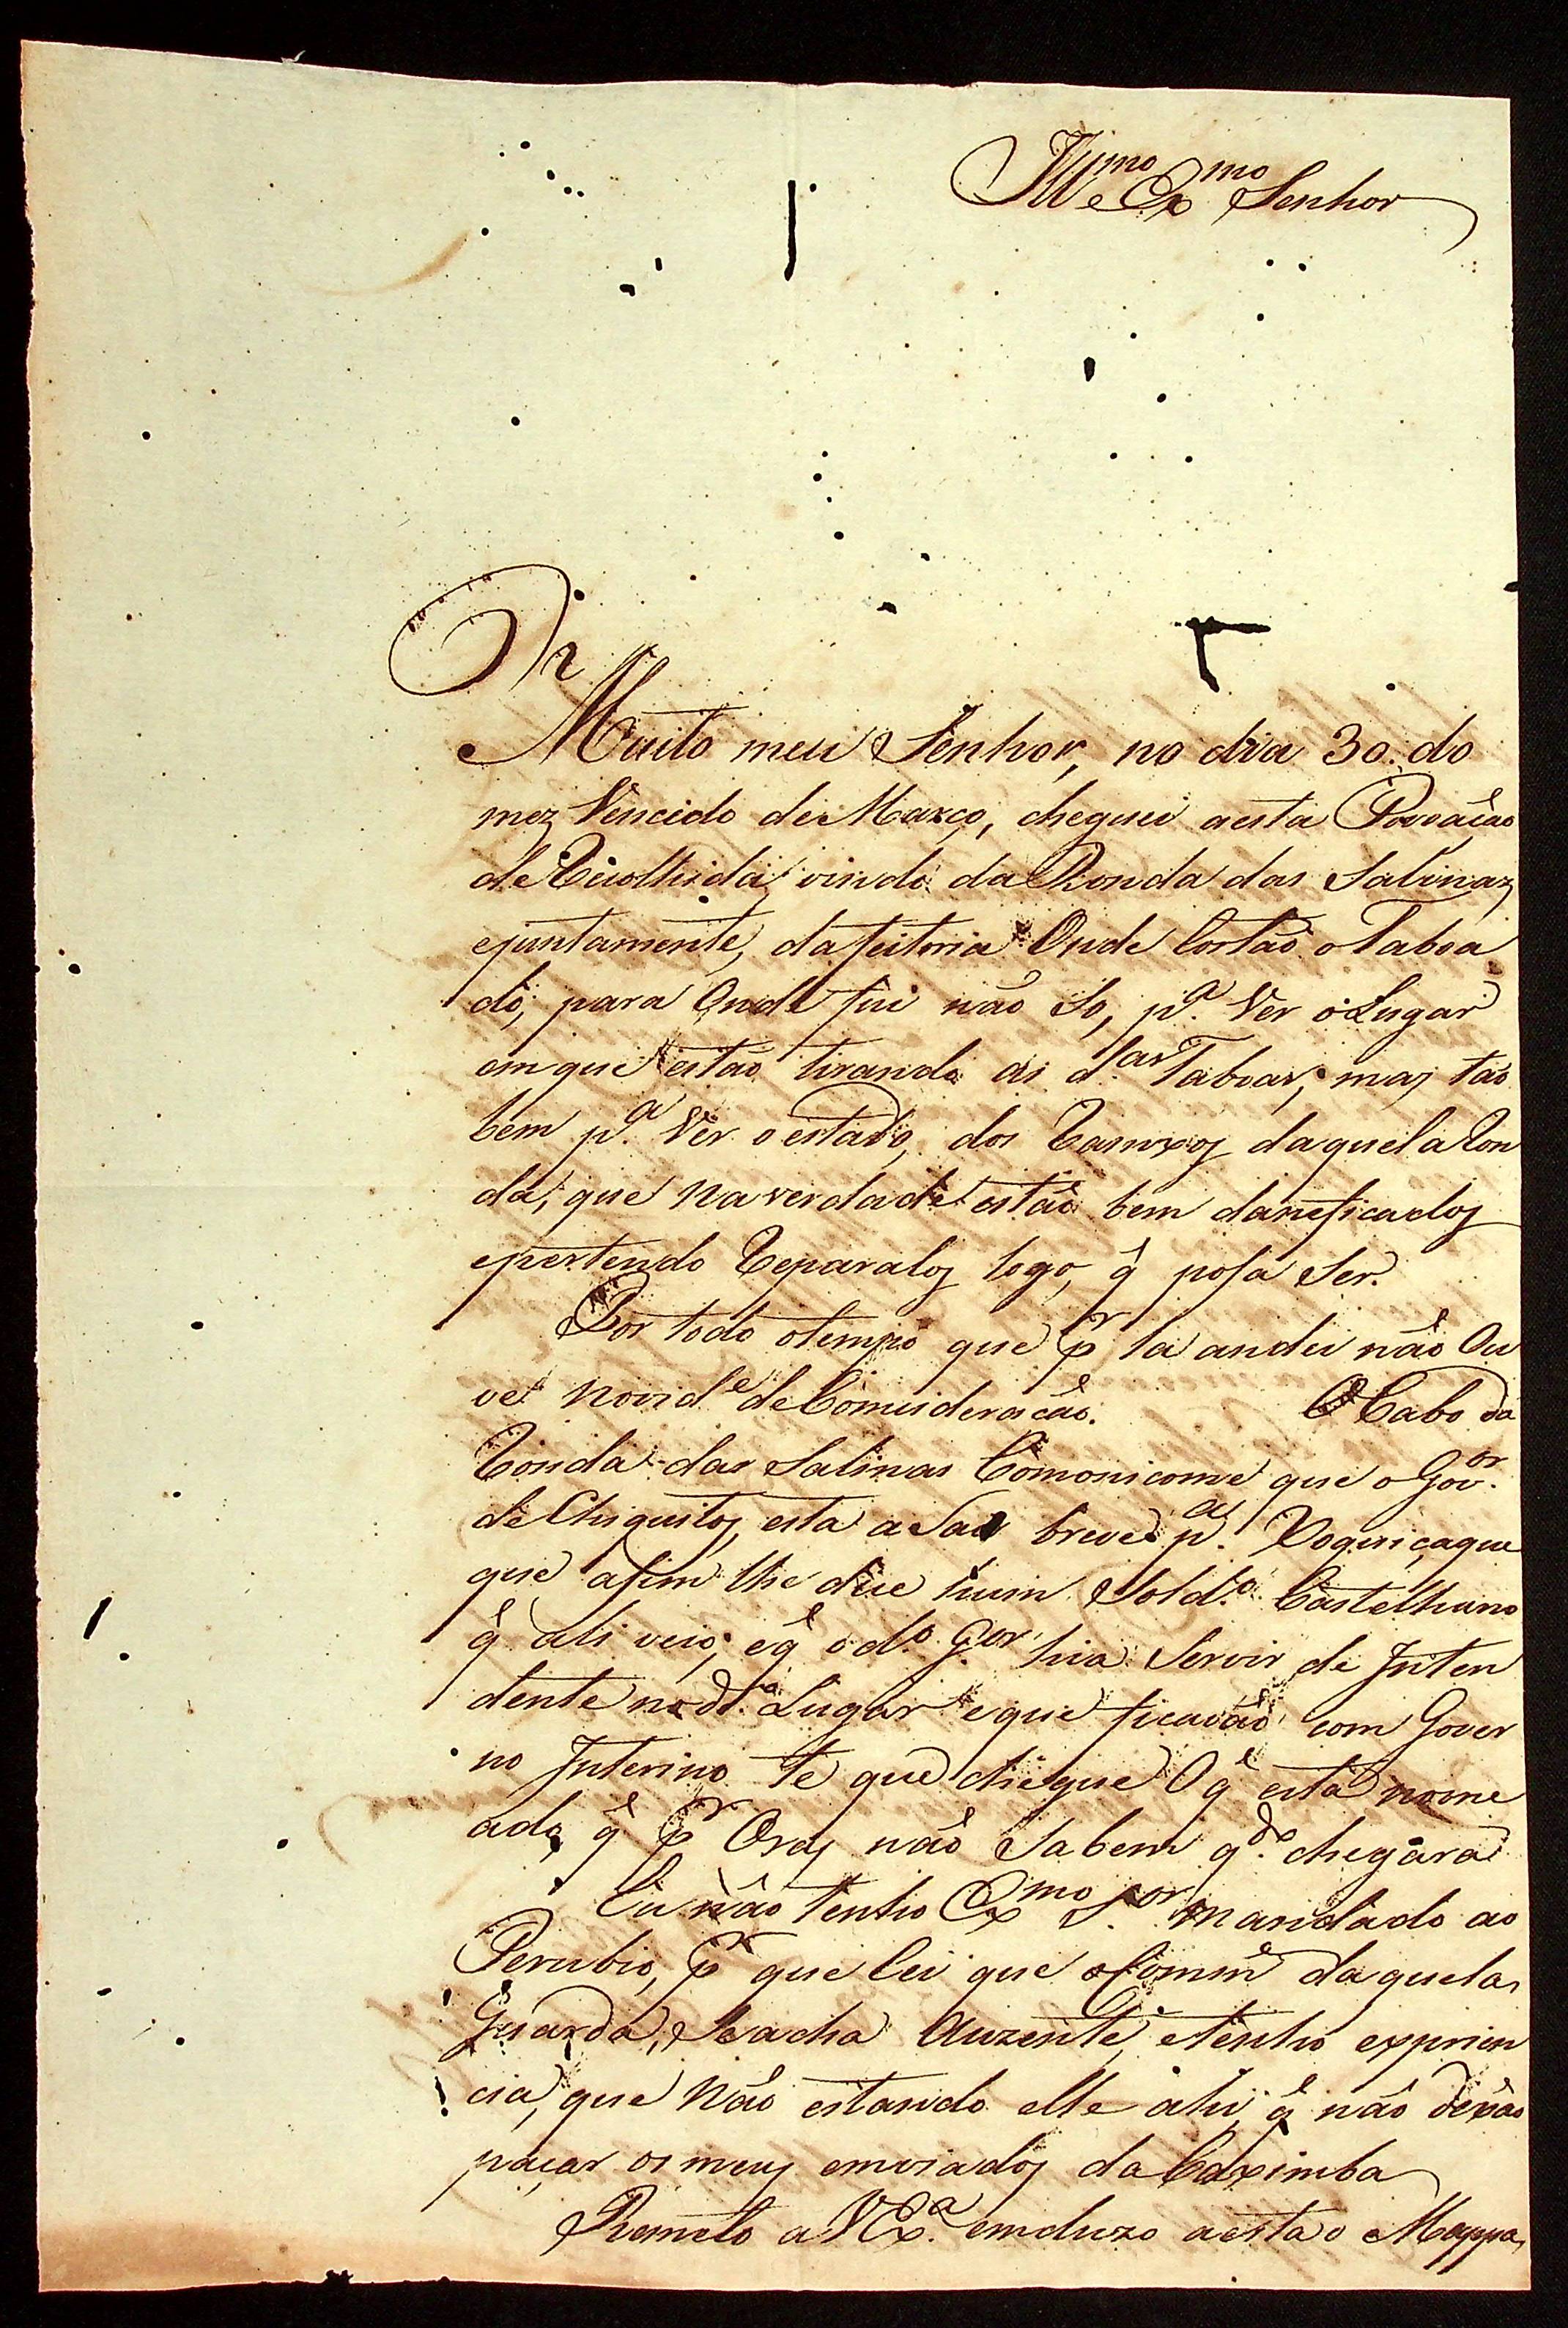 Illmo e Exmo Senhor
Muito meu Senhor, no dia 30. do
mez Vencido de Março, cheguei a esta Povoação
de Recolhida, vindo da Ronda das Salinaz
ejuntamente, dafeitoria Onde Cortão o Taboa
do, para Onde fui não So, pa. Ver o Lugar
em que estão tirando as d.as Taboas, mas tão
bem pa. Ver o estado, dos Ranxos daquela Ron
da, que na verdade estão bem daneficados
epertendo Reparalos logo, q̃ posa Ser.
Por todo otempo que pr la andei não Ou
ve novide de Comsideração. O Cabo da
Ronda das Salinas Comonicome que o Gov.or
de Chiquitos, esta a Sair breve pa.
que asim lhe dice hum Sold.o Castelhano
q̃ ali veio; e q̃ o d.o G.or hia Servir de Inten
dente no d.o Lugar e que ficavão com Gover
no Interino te que chegue O q̃ está nome
ado, q̃ pr Oras não Sabem q.do chegará
Eu não tenho Exmo S.or mandado ao
Perubio, pr que Cei que o Comm.e daquela
Guarda, Seacha Auzente, etenho exprien
cia, que Não estando elle ahi, q̃ não dexão
paçar os meus emviados da Caximba
Remeto a VExa. emcluzo aesta o Mappa,